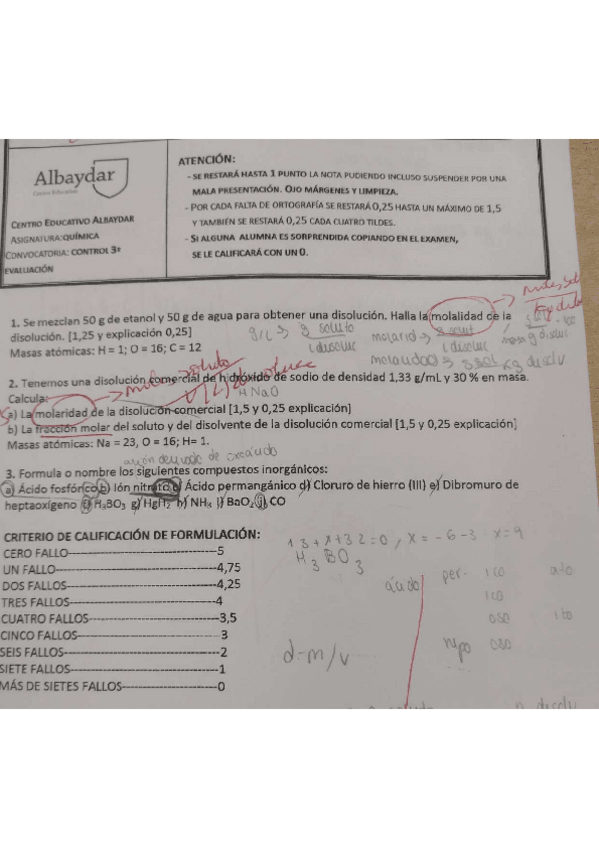 Albaydar
Centro Educativo
CENTRO EDUCATIVO ALBAYDAR
ASIGNATURA:QUÍMICA
CONVOCATORIA: CONTROL 3ª
EVALUACIÓN
ATENCIÓN:
- SE RESTARÁ HASTA 1 PUNTO LA NOTA PUDIENDO INCLUSO SUSPENDER POR UNA
MALA PRESENTACIÓN. OJO MÁRGENES Y LIMPIEZA.
- POR CADA FALTA DE ORTOGRAFÍA SE RESTARÁ 0,25 HASTA UN MÁXIMO DE 1,5
Y TAMBIÉN SE RESTARÁ 0,25 CADA CUATRO TILDES.
- SI ALGUNA ALUMNA ES SORPRENDIDA COPIANDO EN EL EXAMEN,
SE LE CALIFICARÁ CON UN 0.
1. Se mezclan 50 g de etanol y 50 g de agua para obtener una disolución. Halla la molalidad de la
disolución. [1,25 y explicación 0,25]
g/L → g soluto
L disoluc
molarid →
L disoluc
Masas atómicas: H = 1; O = 16; C = 12
2. Tenemos una disolución comercial de hidróxido de sodio de densidad 1,33 g/mL y 30 % en masa.
Calcula:
HNaO
a) La molaridad de la disolución comercial [1,5 y 0,25 explicación]
b) La fracción molar del soluto y del disolvente de la disolución comercial [1,5 y 0,25 explicación]
Masas atómicas: Na = 23, O = 16; H= 1.
3. Formula o nombre los siguientes compuestos inorgánicos:
a) Ácido fosfórico b) Ión nitrato c) Ácido permangánico d) Cloruro de hierro (III) e) Dibromuro de
heptaoxígeno f) H₃BO₃ g) HgH₂ h) NH₃ i) BaO₂ j) CO
CRITERIO DE CALIFICACIÓN DE FORMULACIÓN:
CERO FALLO-----------------------------5
UN FALLO-------------------------------4,75
DOS FALLOS-----------------------------4,25
TRES FALLOS----------------------------4
CUATRO FALLOS--------------------------3,5
CINCO FALLOS---------------------------3
SEIS FALLOS----------------------------2
SIETE FALLOS---------------------------1
MÁS DE SIETES FALLOS-------------------0
H₃BO₃
d=m/v
ácido
per- ico ato
ico
oso ito
hipo oso